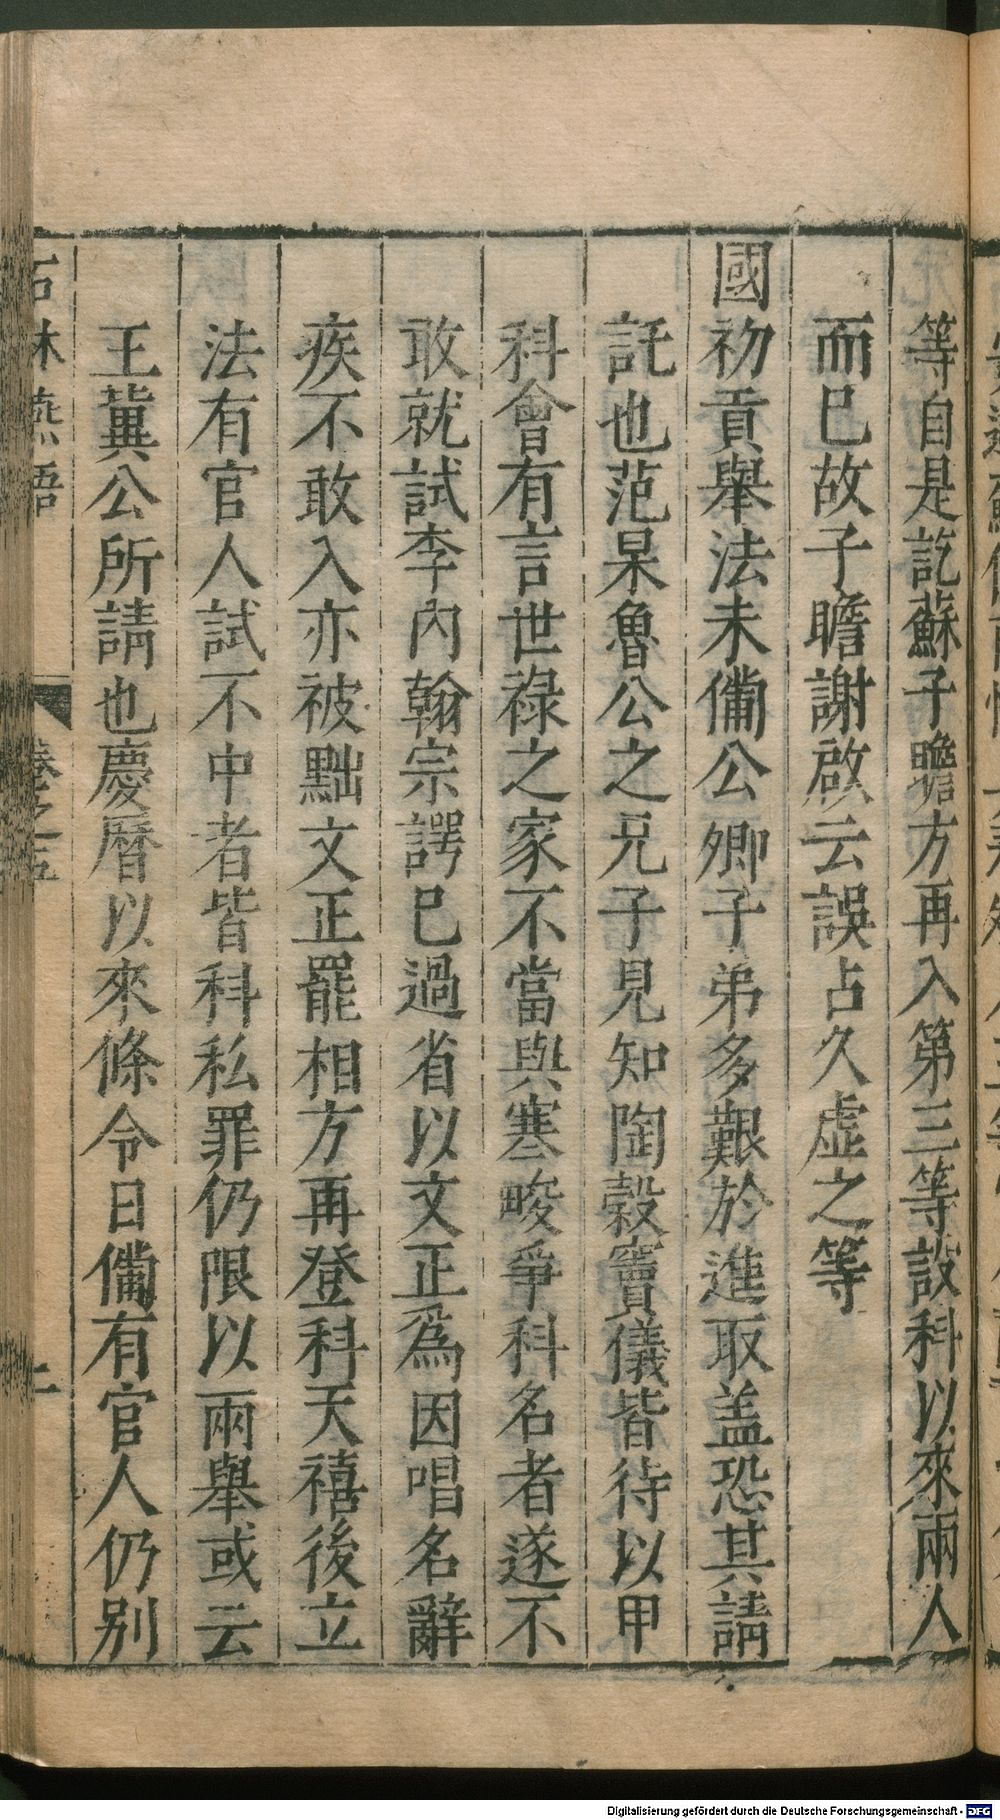 等自是訖蘇子瞻方再入第三等設科以來兩人
而巳故子瞻謝啟云誤占久虛之等
國初貢舉法未備公卿子弟多艱於進取盖恐其請
託也范杲魯公之兄子見知陶榖竇儀皆待以甲
科會有言世祿之家不當與寒畯爭科名者遂不
敢就試李內翰宗諤巳過省以文正爲因唱名辭
疾不敢入亦被黜文正罷相方再登科天禧後立
法有官人試不中者皆科私罪仍限以兩舉或云
王冀公所請也慶曆以來條令日備有官人仍別
石林燕語
卷之五
Digitalisierung gefördert durch die Deutsche Forschungsgemeinschaft - DFG